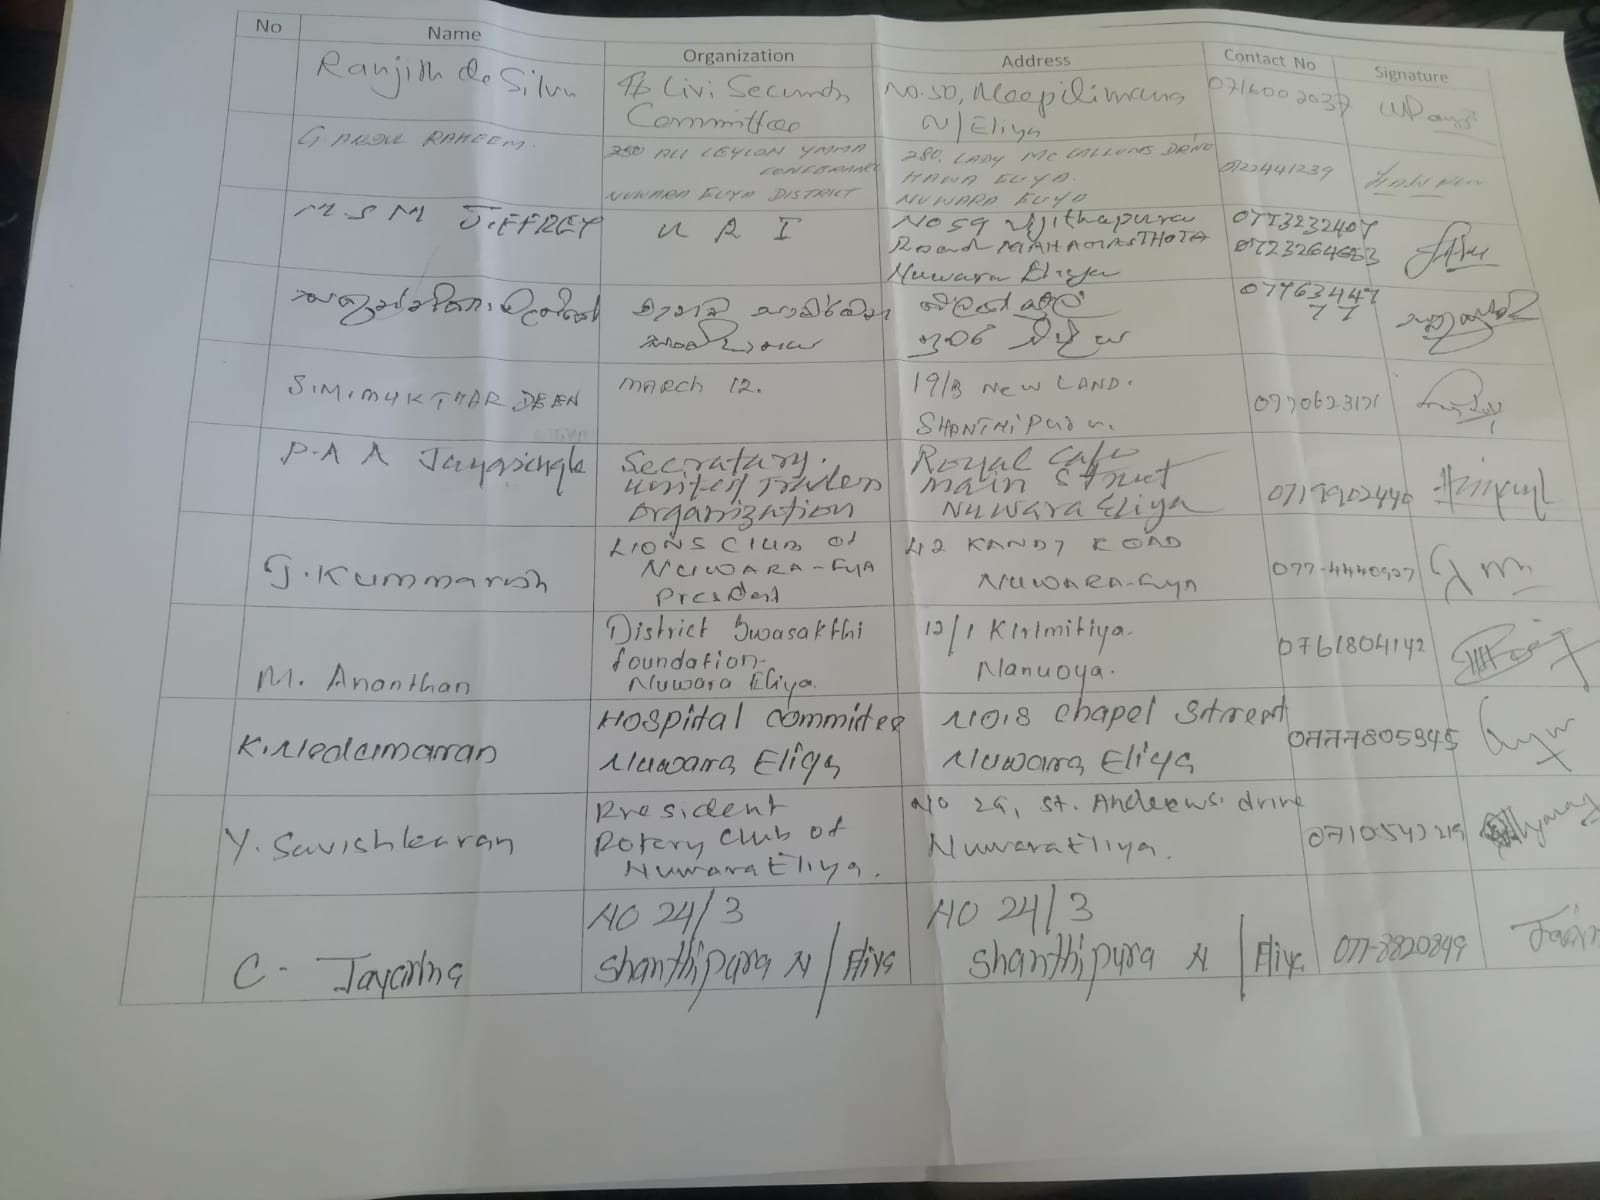 No Name Organization Address Contact No Signature
Ranjith de Silva
Civi Security
Committee
No. 50, Meepilimana
N/Eliya
0716002037
G ABDUL RAHEEM.
280 ALL CEYLON YMMA
CONFERANCE
NUWARA ELIYA DISTRICT
280, LADY Mc CALLUMS DRIVE
HAWA ELIYA.
NUWARA ELIYA
0522441239
M S M JEFFREY
U R I
No 59 Vijithapura
Road MAHAGASTHOTA
Nuwara Eliya
0773232407
0723264683
නුවර එළිය
07763447
77
S.M.MUKTHAR DEEN
MARCH 12.
19/B NEW LAND.
SHANTHIPURA.
0770623171
P.A A Jayasingle
Secratary.
united Traders
organization
Royal Cafe
main Street
Nuwara Eliya
0719902440
J. Kummaresh
LIONS CLUB of
NUWARA-EliyA
President
42 KANDY ROAD
NUWARA-EliyA
077-4440927
M. Ananthan
District Swasakthi
foundation-
Nuwara Eliya.
12/1 Kirimitiya.
Nanuoya.
0761804142
K. Nedumaran
Hospital Committee
Nuwara Eliya
NO.8 Chapel Street
Nuwara Eliya
0777805945
Y. Savishkaran
President
Rotery Club of
Nuwara Eliya.
No 29, St. Andrews. drive
Nuwara Eliya.
0710542219
C. Jayarina
NO 24/3
Shanthipura N/Eliya
NO 24/3
Shanthipura N/Eliya
077-3820849